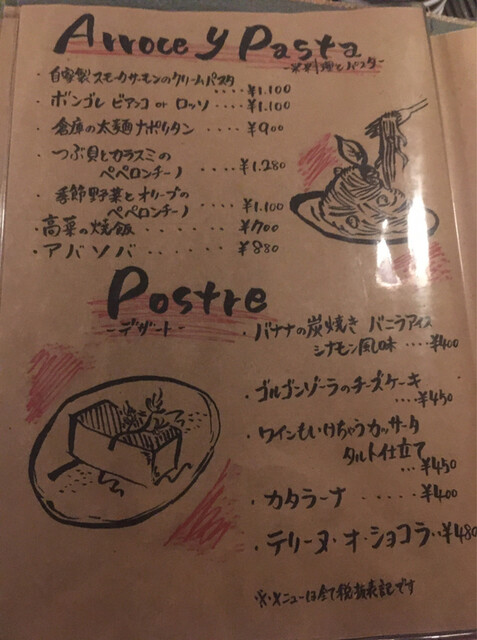 Arroce y Pasta
-米料理とパスタ-
・自家製スモークサーモンのクリームパスタ
....¥1.100
・ボンゴレ ビアンコ or ロッソ....¥1.100
・倉庫の太麺ナポリタン....¥900
・つぶ貝とカラスミの
ペペロンチーノ....¥1.280
・季節野菜とオリーブの
ペペロンチーノ....¥1.100
・高菜の焼飯......¥700
・アバソバ......¥880
Postre
-デザート-
・バナナの炭焼き バニラアイス
シナモン風味....¥400
・ゴルゴンゾーラのチーズケーキ
....¥450
・ワインもいけちゃうカッサータ
タルト仕立て
...¥450
・カタラーナ.....¥400
・テリーヌ・オ・ショコラ・・¥480
※メニューは全て税抜表記です